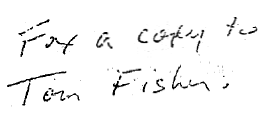 Fax a copy to
Tom Fisher.